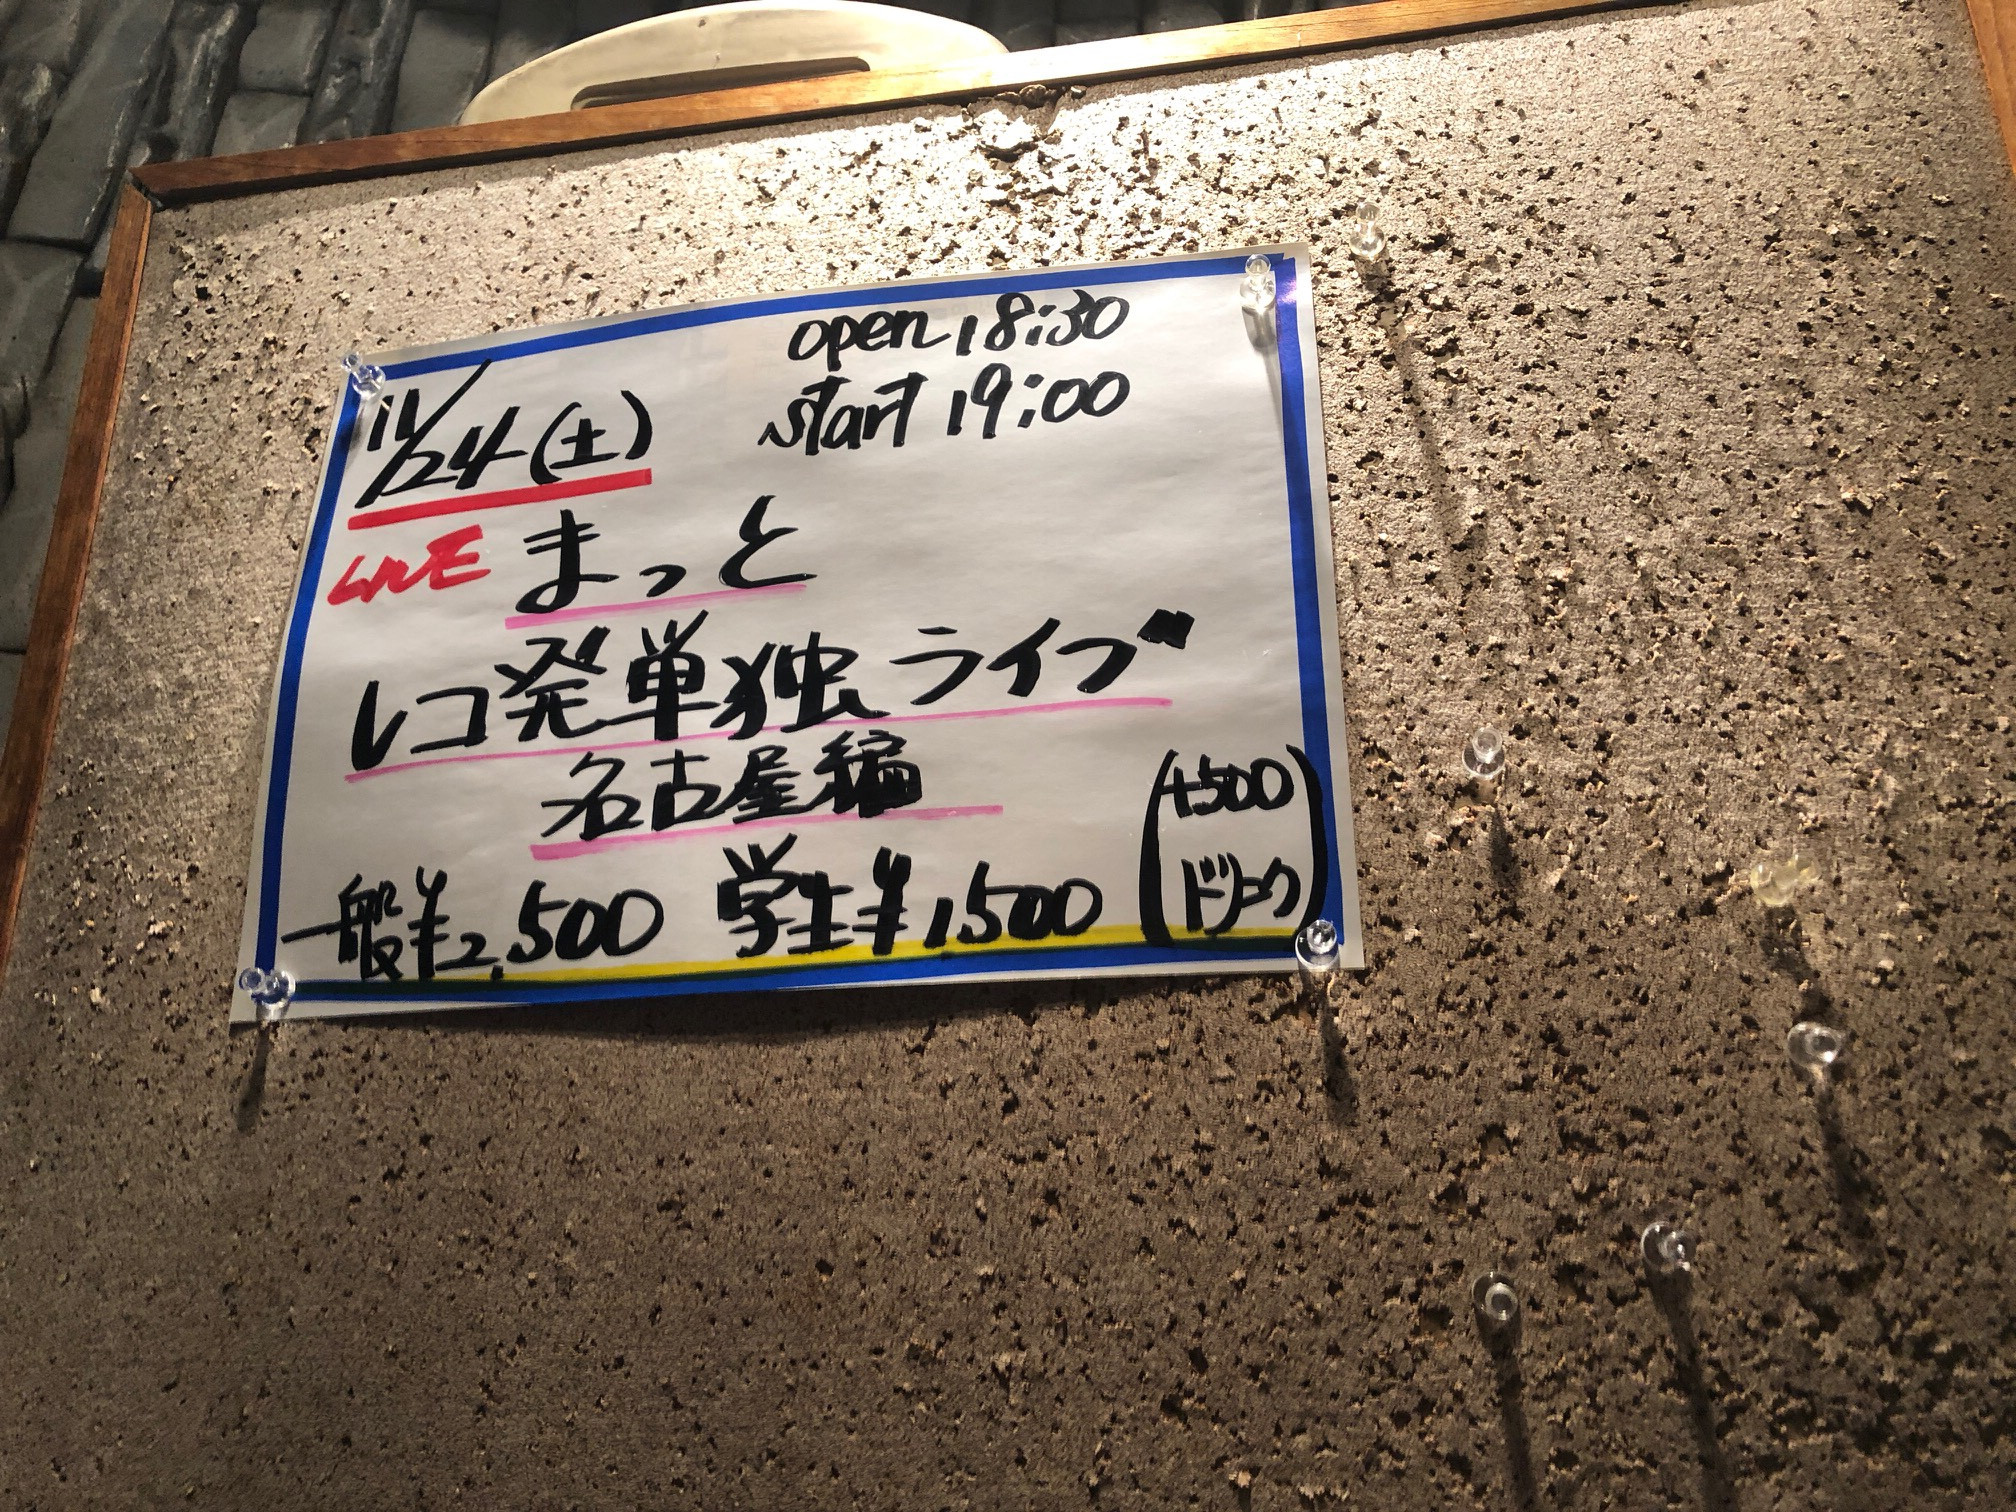 open 18:30
start 19:00
11/24(土)
LIVE まっと
レコ発単独ライブ
名古屋編
一般¥2,500 学生¥1,500 (+500ドリンク)